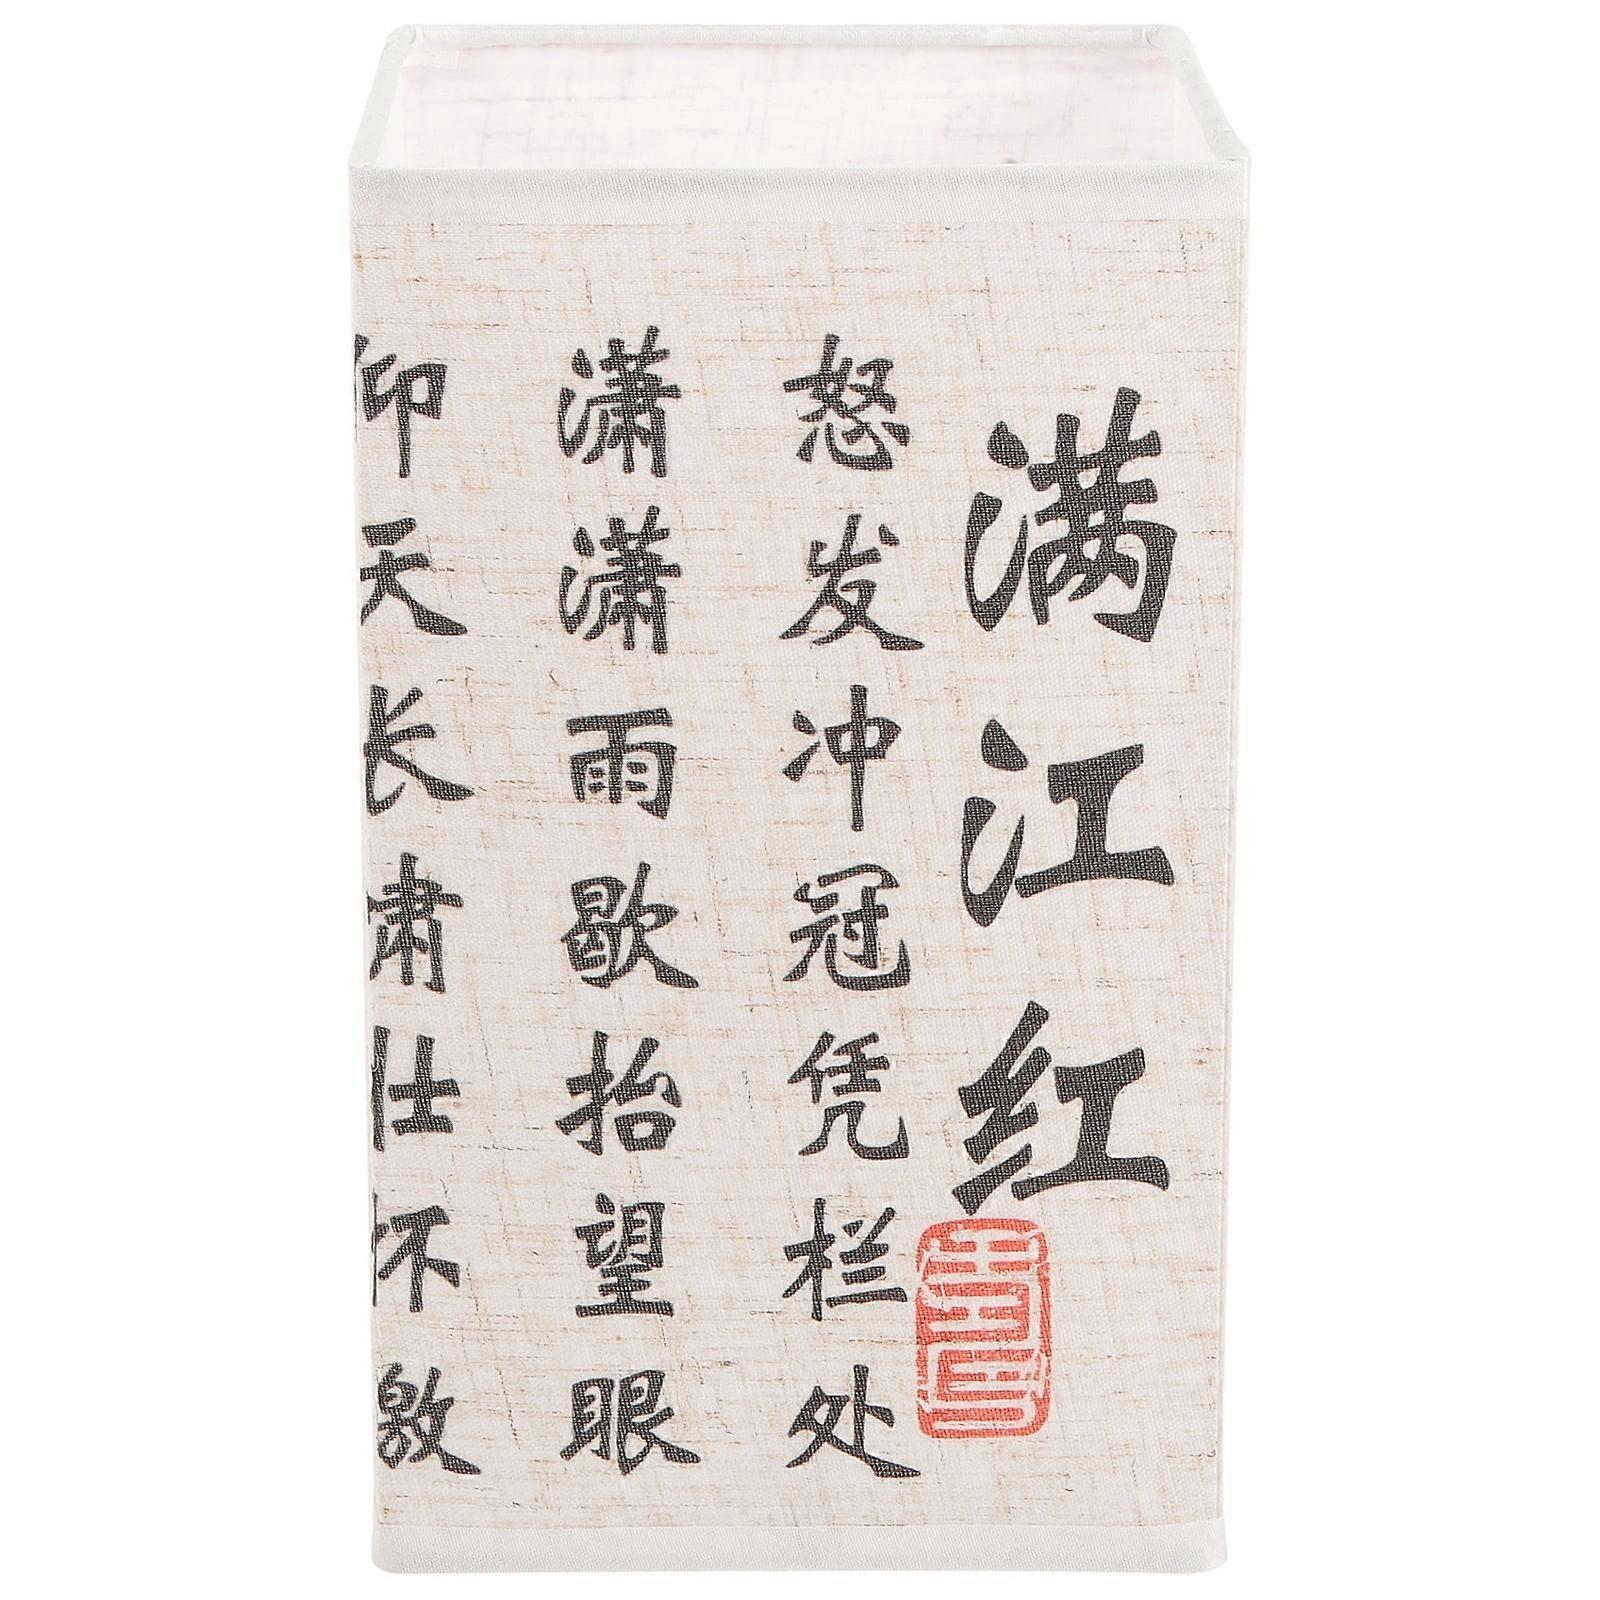 满江红
怒发冲冠凭栏处
潇潇雨歇抬望眼
仰天长啸壮怀激